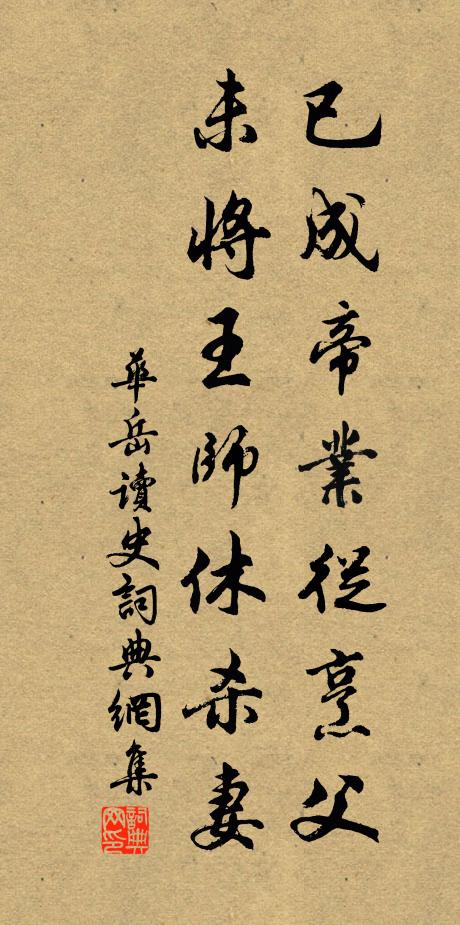 已成帝業從烹父
未將王師休杀妻
華岳讀史詞典網集
詞典網印